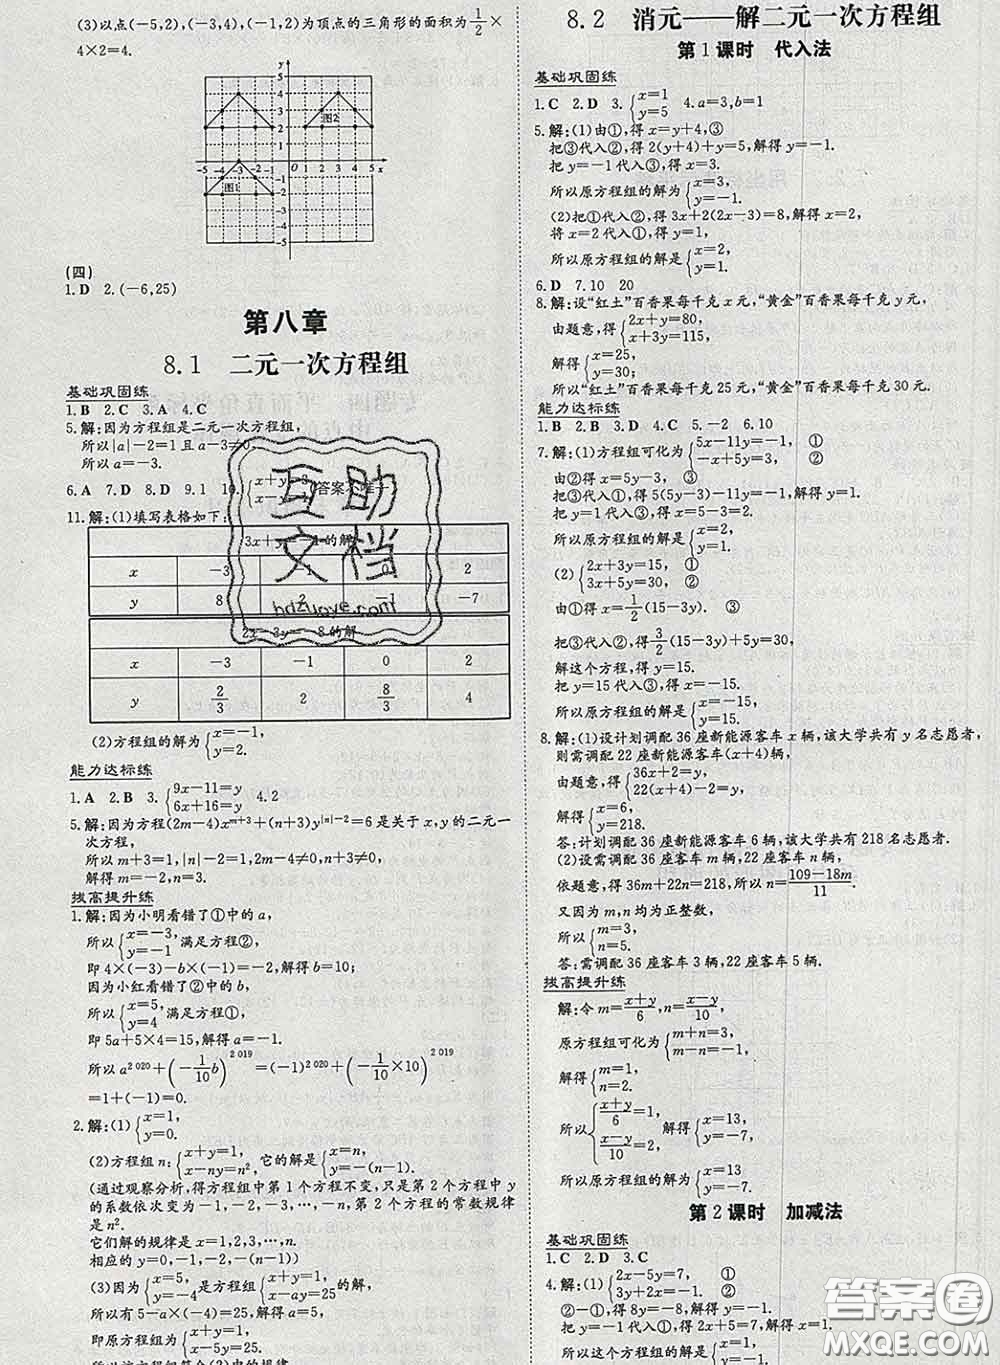 (3)以点(-5,2),(-3,4),(-1,2)为顶点的三角形的面积为1/2×
4×2=4.
图1
图2
(四)
1.D 2.(-6,25)
第八章
8.1 二元一次方程组
基础巩固练
1.B 2.C 3.A 4.C
5.解:因为方程组是二元一次方程组,
所以|a|-2=1且a-3≠0,
所以a=-3.
6.A 7.D 8.D 9.1 10.
(答案不唯一)
11.解:(1)填写表格如下:
3x+y=-1的解
x -3 -1 0 2
y 8 2 -1 -7
2x-3y=-8的解
x -3 -1 0 2
y 2/3 2 8/3 4
(2)方程组的解为{x=-1, y=2.
能力达标练
1.A 2.B 3.{9x-11=y 6x+16=y 4.2
5.解:因为方程(2m-4)x^{m+3}+(n+3)y^{|n|-2}=6是关于x,y的二元一
次方程,
所以m+3=1,|n|-2=1,2m-4≠0,n+3≠0,
解得m=-2,n=3.
拔高提升练
1.解:因为小明看错了①中的a,
所以{x=-3, y=-1满足方程②,
即4×(-3)-b×(-1)=-2,解得b=10,
因为小红看错了②中的b,
所以{x=5, y=4满足方程①,
即5a+5×4=15,解得a=-1.
所以a^{2 020}+(-1/10 b)^{2 019}=(-1)^{2 020}+(-1/10×10)^{2 019}
=1+(-1)=0.
2.解:(1){x=1, y=0.
(2)方程组n:{x+y=1, x-ny=n²,它的解是{x=n, y=-(n-1).
(通过观察分析,得方程组中第1个方程不变,只是第2个方程中y
的系数依次变为-1,-2,-3,…,-n,第2个方程的常数规律
是n².
它们解的规律是x=1,2,3,…,n.
相应的y=0,-1,-2,…,-(n-1))
(3)因为{x=5, y=-4,是方程组{x+y=1, x-ay=25的解,
所以有5-a×(-4)=25,解得a=5.
即原方程组为{x+y=1, x-5y=25,
8.2 消元——解二元一次方程组
第1课时 代入法
基础巩固练
1.C 2.D 3.{x=1 y=5 4.a=3,b=1
5.解:(1)由①,得x=y+4,③
把③代入②,得2(y+4)+y=5,解得y=-1.
把y=-1代入③,得x=3.
所以原方程组的解为{x=3, y=-1.
(2)把①代入②,得3x+2(2x-3)=8,解得x=2,
将x=2代入①,得y=1.
所以原方程组的解是{x=2, y=1.
6.D 7.10 20
8.解:设“红土”百香果每千克x元,“黄金”百香果每千克y元,
由题意,得{2x+y=80, x+3y=115,
解得{x=25, y=30;
所以“红土”百香果每千克25元,“黄金”百香果每千克30元.
能力达标练
1.B 2.B 3.B 4.C 5.-2 6.10
7.解:(1)方程组可化为{5x-11y=-1, ① -x+3y=1, ②
由②得x=3y-1③,
把③代入①,得5(3y-1)-11y=-1,解得y=1.
把y=1代入③,得x=3-1=2.
(2){2x+3y=15, ① 3x+5y=30, ②
由①得x=1/2(15-3y). ③
把③代入②,得3/2(15-3y)+5y=30,
解这个方程,得y=15.
把y=15代入③,得x=-15.
所以原方程组的解是{x=-15, y=15.
8.解:(1)设计划调配36座新能源客车x辆,该大学共有y名志愿者,
则需调配22座新能源客车(x+4)辆,
由题意,得{36x+2=y, 22(x+4)-2=y,
解得{x=6, y=218.
答:计划调配36座新能源客车6辆,该大学共有218名志愿者.
(2)设需调配36座客车m辆,22座客车n辆,
依题意,得36m+22n=218,所以n=(109-18m)/11.
又因为m,n均为正整数,
所以{m=3, n=5.
答:需调配36座客车3辆,22座客车5辆.
拔高提升练
解:令m=(x+y)/6,n=(x-y)/10,
原方程组可化为{m+n=3, m-n=-1,
解得{m=1, n=2.
所以{(x+y)/6=1, (x-y)/10=2,解得{x=13, y=-7.
所以原方程组的解是{x=13, y=-7.
第2课时 加减法
基础巩固练
1.C 2.D 3.C
4.解:(1){2x-5y=7, ① 3y+2x=-1. ②
②-①,得8y=-8,解得y=-1.
互助文档
hdzuoye.com
答案圈
MXQE.COM